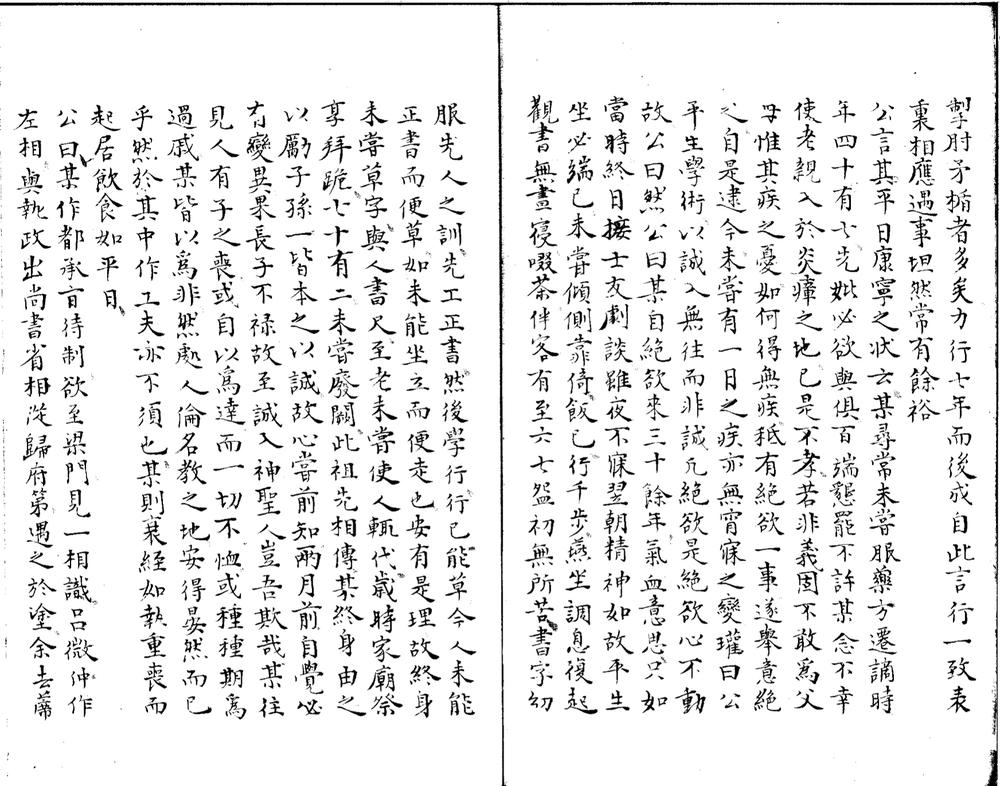 掣肘矛楯者多矣力行七年而後成自此言行一致表
裏相應遇事坦然常有餘裕
公言其平日康寧之狀云某尋常未嘗服藥方遷謫時
年四十有七先妣必欲與俱百端懇罷不許某念不幸
使老親入於炎瘴之地已是不孝若非義固不敢爲父
母惟其疾之憂如何得無疾秪有絶欲一事遂舉意絶
之自是逮今未嘗有一日之疾亦無宵寐之變瓘曰公
平生學術以誠入無往而非誠凡絶欲是絶欲心不動
故公曰然公曰某自絶欲來三十餘年氣血意思只如
當時終日接士友劇談雖夜不寐翌朝精神如故平生
坐必端已未嘗傾側靠倚飯已行千步燕坐調息復起
觀書無晝寢啜茶伴客有至六七盌初無所苦書字幼
服先人之訓先工正書然後學行行已能草今人未能
正書而便草如未能坐立而便走也安有是理故終身
未嘗草字與人書尺至老未嘗使人輒代歲時家廟祭
享拜跪七十有二未嘗廢闕此祖先相傳某終身由之
以勵子孫一皆本之以誠故心嘗前知兩月前自覺必
有變異果長子不禄故至誠入神聖人豈吾欺哉某往
見人有子之喪或自以爲達而一切不恤或種種期爲
過戚某皆以爲非然處人倫名教之地安得晏然而已
乎然於其中作工夫亦不須也某則衰絰如執重喪而
起居飲食如平日
公曰某作都承旨待制欲至梁門見一相識吕微仲作
左相與執政出尚書省相從歸府第遇之於塗余去蓆